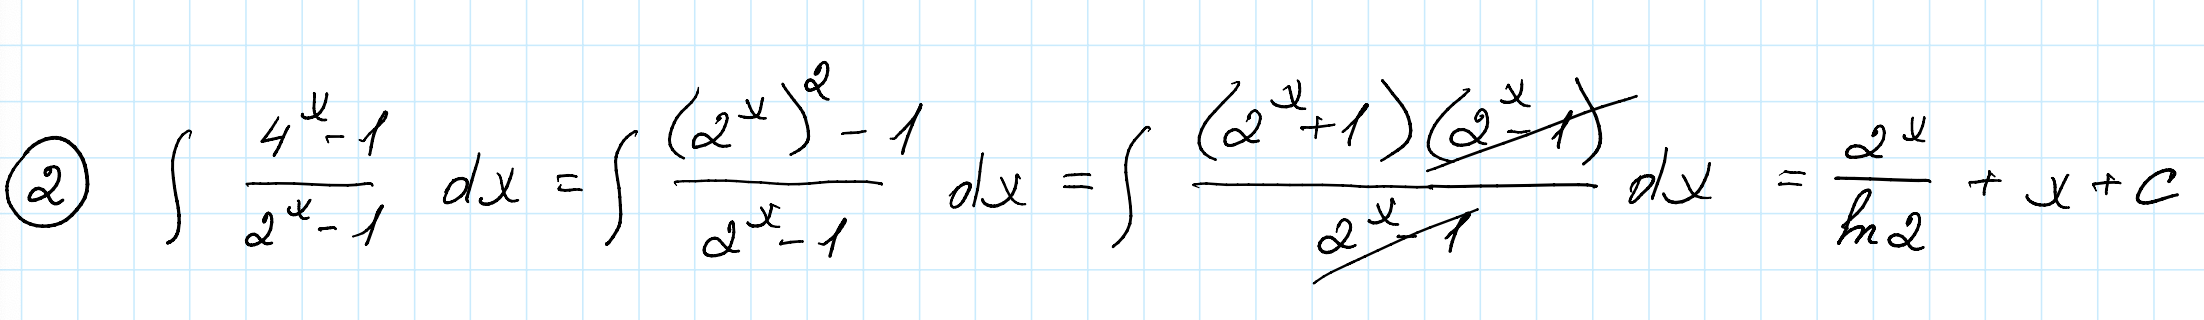 ② ∫ (4^x - 1)/(2^x - 1) dx = ∫ ((2^x)^2 - 1)/(2^x - 1) dx = ∫ ((2^x + 1)(2^x - 1))/(2^x - 1) dx = 2^x/ln 2 + x + C